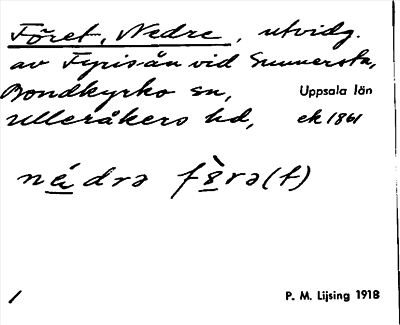 Föret, Nedre, utvidg.
av Fyrisån vid Sunnersta,
Bondkyrko sn, Uppsala län
Ulleråkers hd, ek 1861
nädrə fö̀rə(t)
1 P. M. Lijsing 1918